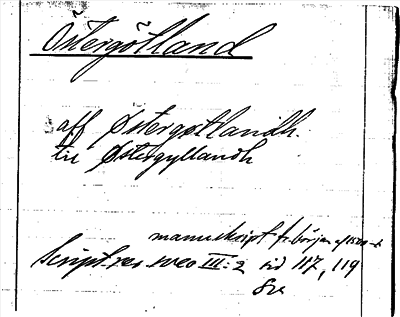 Östergötland
aff Østergøtlandh.
til Østergyllandh
manuskript fr. början af 1500-t
Script. rer. sveo III:2 sid 117, 119
Sv